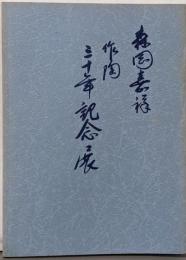 森岡嘉祥
作陶
三十年記念展